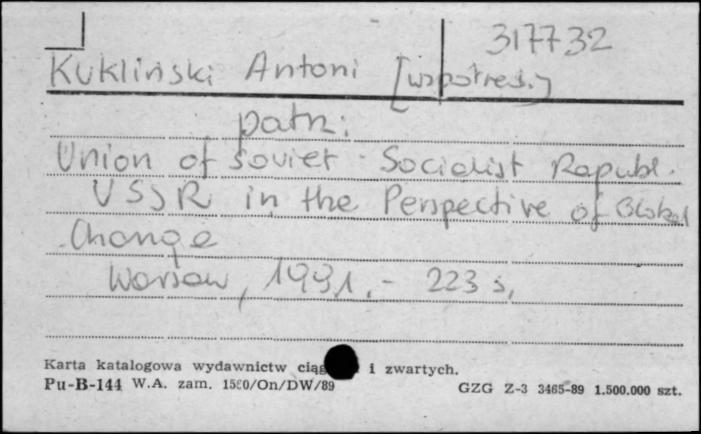 317732
Kukliński Antoni [współred.]
patrz:
Union of Soviet Socialist Republ.
USSR in the Perspective of Global
Change
Warsaw, 1991. - 223 s.
Karta katalogowa wydawnictw i zwartych.
Pu-B-144 W.A. zam. 1580/On/DW/89 GZG Z-3 3465-89 1.500.000 szt.